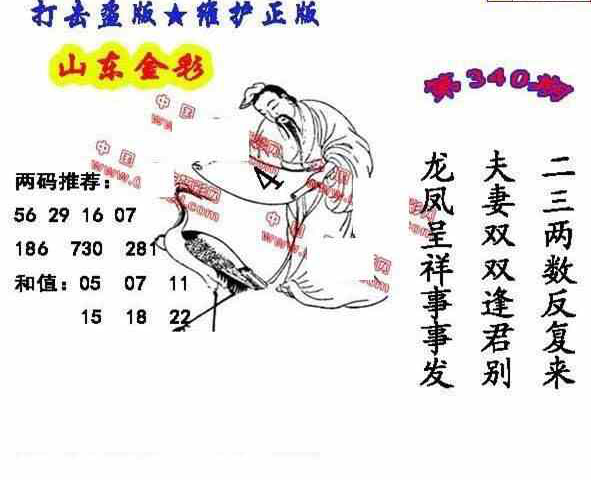 打击盗版★维护正版
山东金彩
第340期
二三两数反复来
夫妻双双逢君别
龙凤呈祥事事发
两码推荐：
56 29 16 07
186 730 281
和值：05 07 11
15 18 22
4
中国
www.
中国
www.
.com
中国
www.
.com